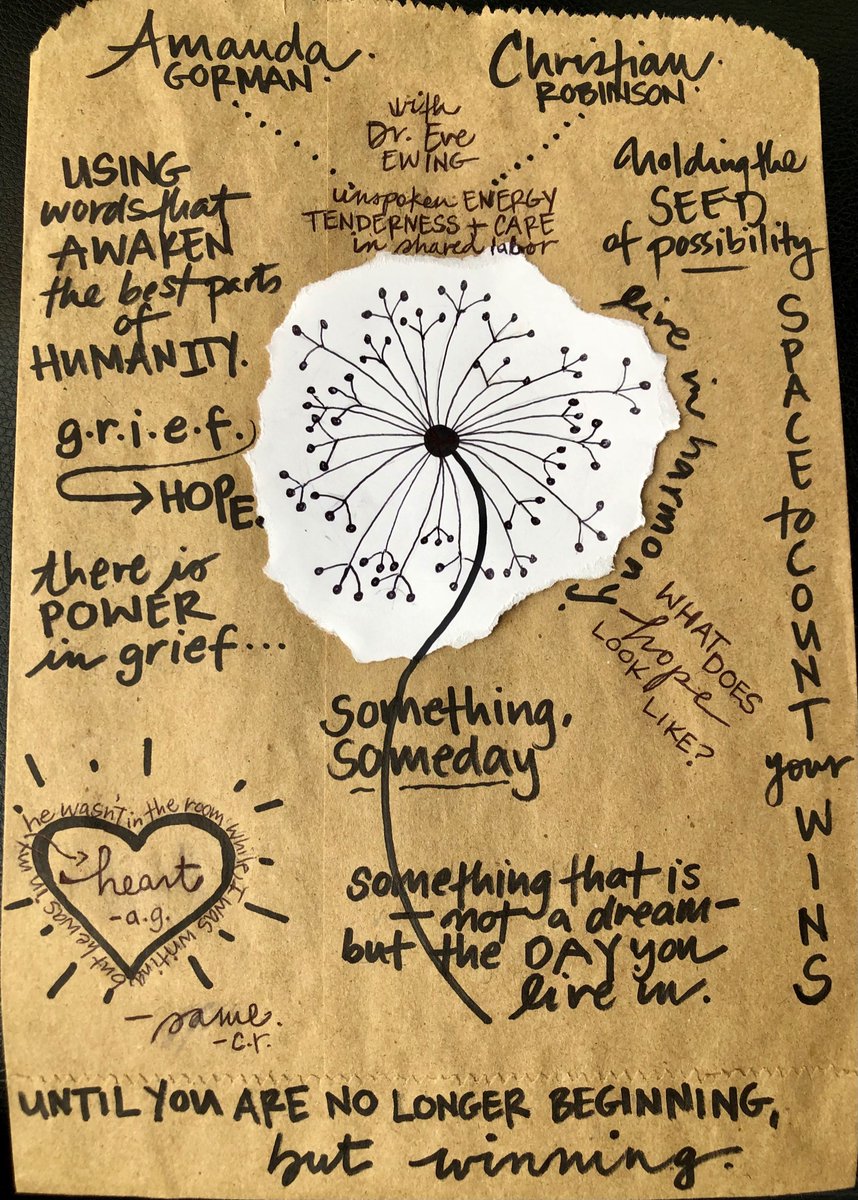 Amanda
GORMAN
Christian
ROBINSON
with
Dr. Eve
EWING
unspoken ENERGY
TENDERNESS + CARE
in shared labor
USING
words that
AWAKEN
the best parts
of
HUMANITY.
g.r.i.e.f.
HOPE.
there is
POWER
in grief...
holding the
SEED
of possibility
live in harmony.
SPACE to COUNT your WINS
WHAT DOES
hope
LOOK LIKE?
something,
someday
he wasn't in the room while I was writing
but he was in my
heart
-a.g.
-same.
-c.r.
something that is
-not a dream-
but the DAY you
live in.
UNTIL YOU ARE NO LONGER BEGINNING,
but winning.